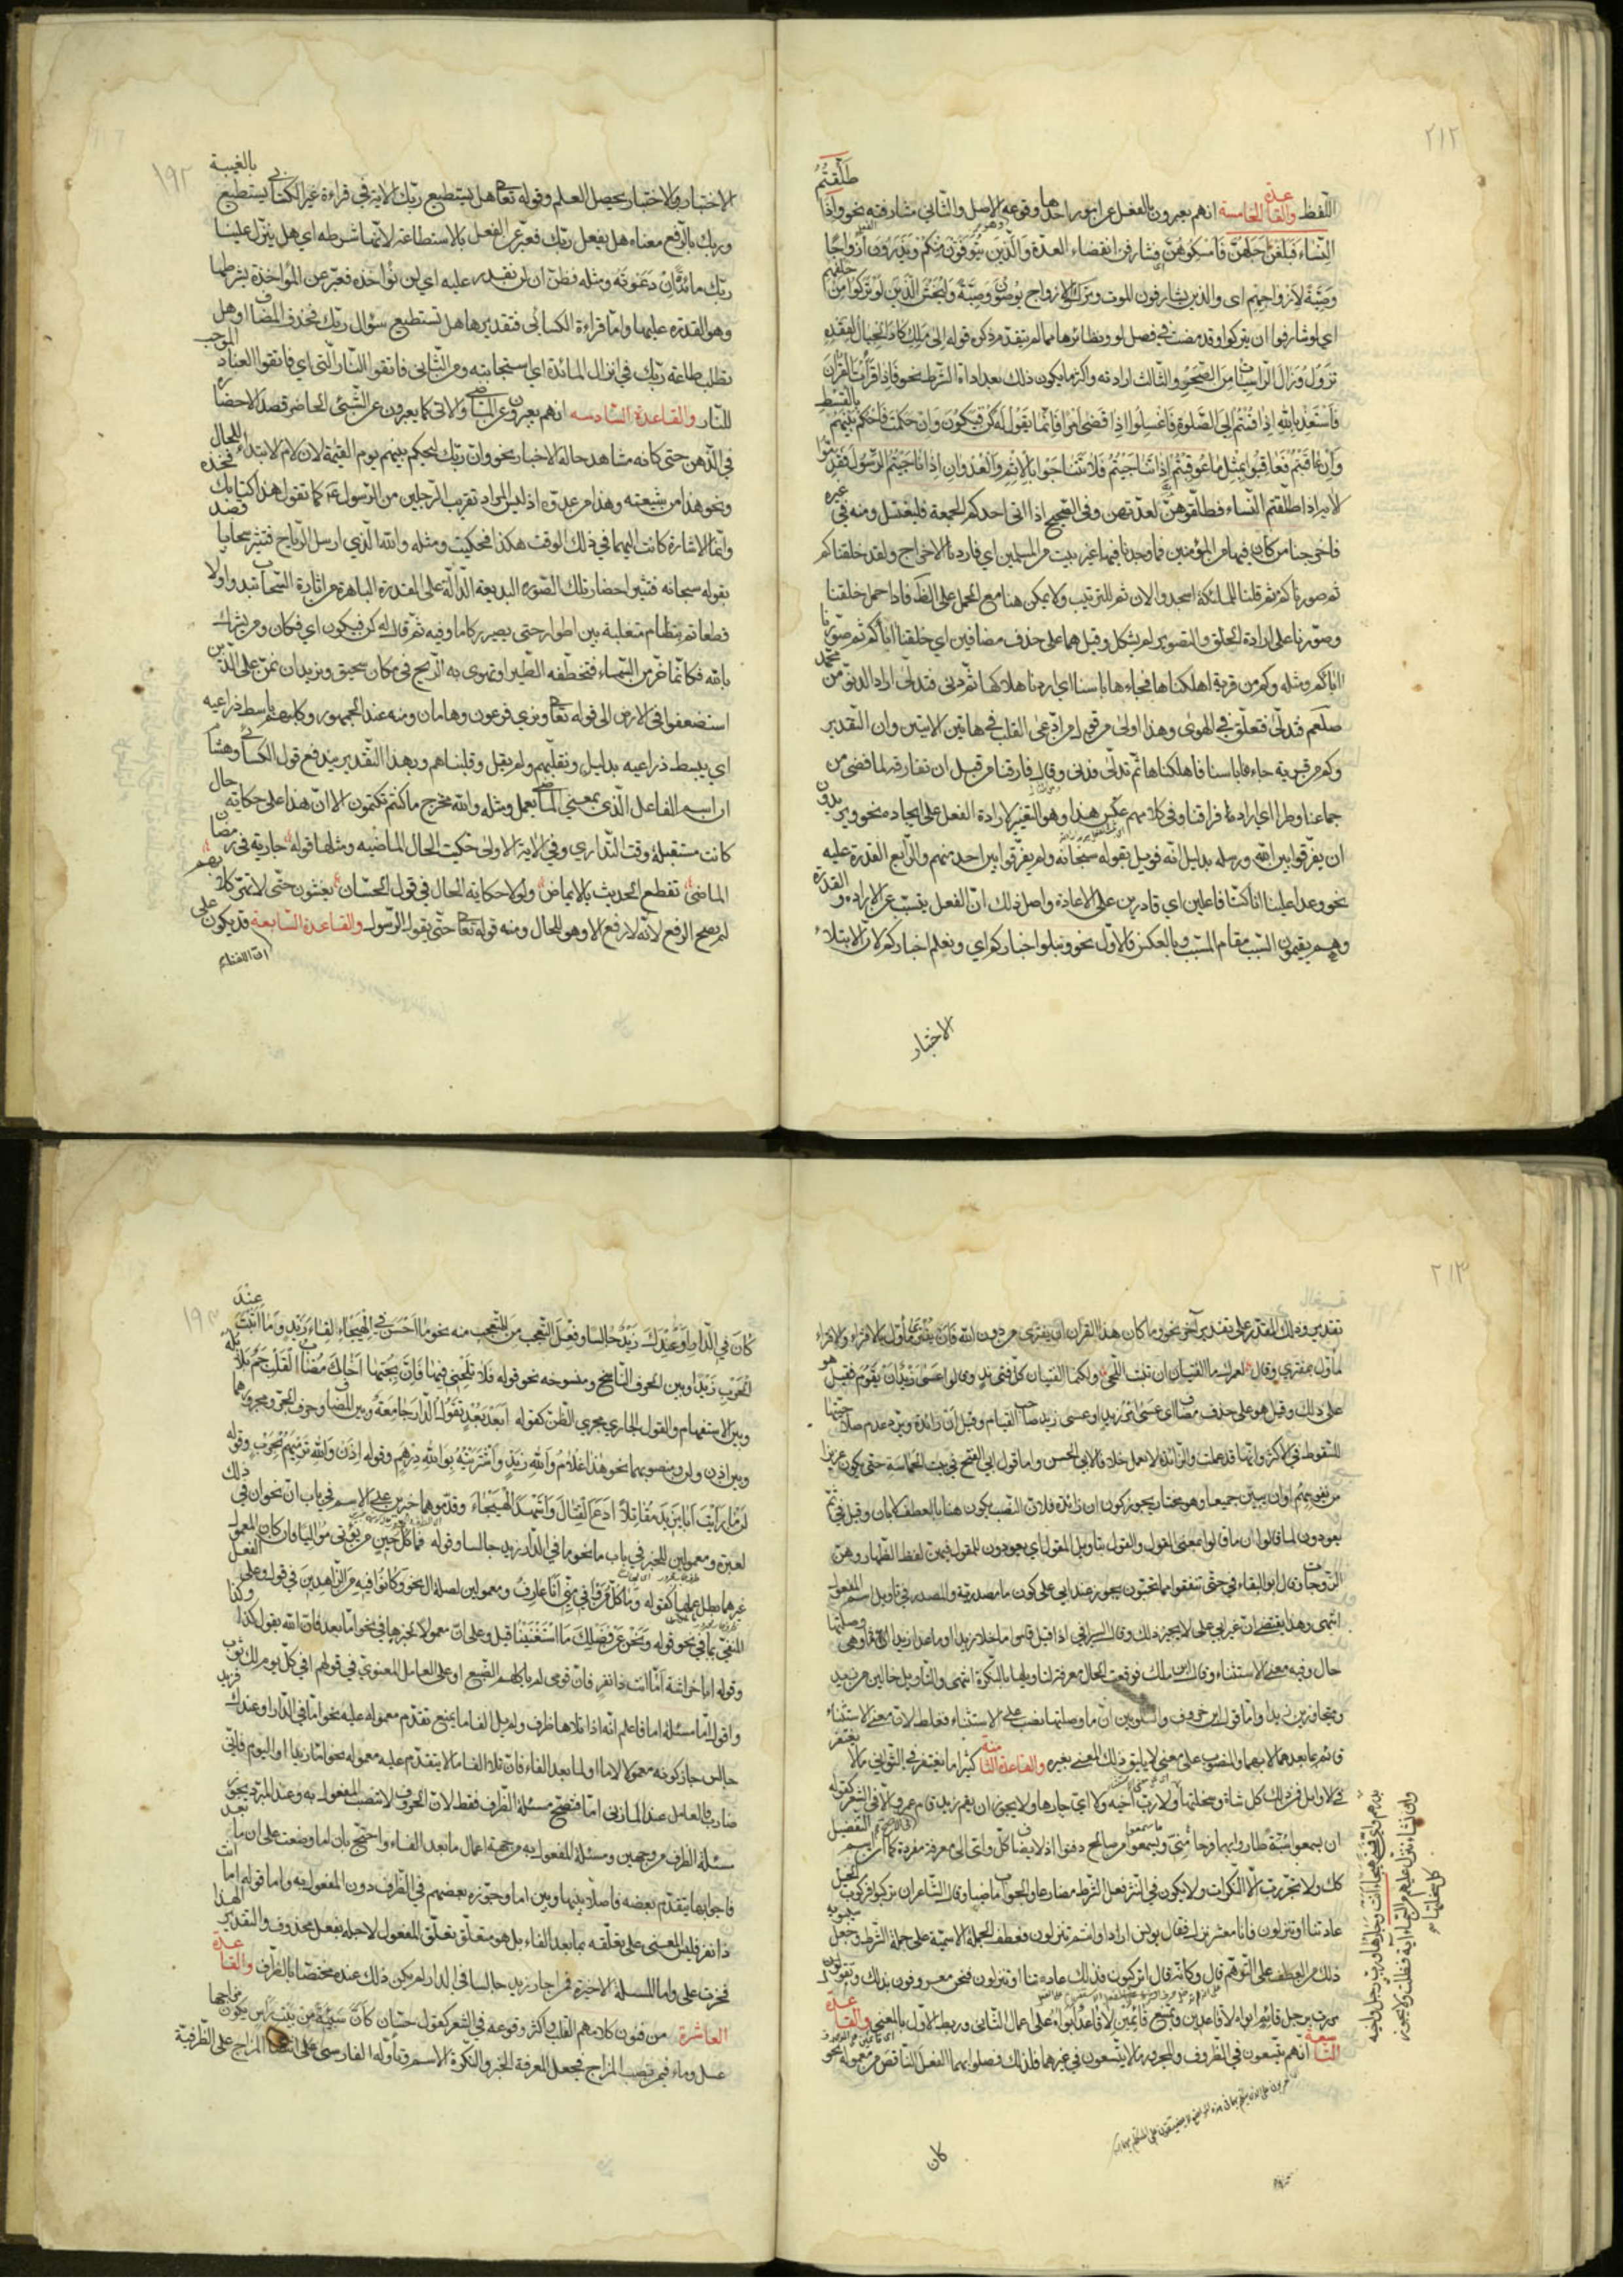 ٢١٢
اللفظ والقاعدة الخامسة انهم يعبرون بالفعل عن امور احدها وقوعه وهو الاصل والثاني مشارفته نحو واذا طلقتم
النساء فبلغن اجلهن فامسكوهن اي فشارفن انقضاء العدة والذين يتوفون منكم ويذرون ازواجا
وصية لازواجهم اى والذين يشارفون الموت وترك الازواج يوصون وصية وليخش الذين لو تركوا من خلفهم
اي لو شارفوا ان يتركوا وقد مضت في فصل لو ونظائرها مما لم يتقدم ذكره قوله الى ملك كاد الجبال لفقده
تزول وزال الراسيات من الصخر والثالث ارادته واكثر ما يكون ذلك بعد اداة الشرط نحو فاذا قرأت القرآن
فاستعذ بالله اذا قمتم الى الصلوة فاغسلوا اذا قضى امرا فانما يقول له كن فيكون وان حكمت فاحكم بينهم بالقسط
وان عاقبتم فعاقبوا بمثل ما عوقبتم اذا تناجيتم فلا تتناجوا بالاثم والعدوان اذا ناجيتم الرسول فقدموا
الاية اذا طلقتم النساء فطلقوهن لعدتهن وفي الصحيح اذا اتى احدكم الجمعة فليغتسل ومنه في غيره
فاخرجنا من كان فيها من المؤمنين فما وجدنا فيها غير بيت من المسلمين اي فاردنا الاخراج ولقد خلقناكم
ثم صورناكم ثم قلنا للملائكة اسجدوا لان ثم للترتيب ولا يمكن هنا مع الحمل على الظ فاذا حمل خلقنا
وصورنا على ارادة الخلق والتصوير لم يشكل وقيل هما على حذف مضافين اي خلقنا اباكم ثم صورنا
اباكم ومثله وكم من قرية اهلكناها فجاءها باسنا اي اردنا اهلاكها ثم دنى فتدلى اراد الدنو من محمد
صلعم فتدلى فتعلق في الهوى وهذا اولى من قول من ادعى القلب في هاتين الايتين وان التقدير
وكم من قرية جاءها باسنا فاهلكناها ثم تدلى فدنى وقال فارقنا من قبل ان نفارقه لما قضى من
جماعنا وطرا اي اراد فراقنا وفي كلامهم عكس هذا وهو التعبير بارادة الفعل على ايجاده نحو ويريدون
ان يفرقوا بين الله ورسله بدليل انه قوبل بقوله سبحانه ولم يفرقوا بين احد منهم والرابع القدرة عليه
نحو وعدا علينا انا كنا فاعلين اي قادرين على الاعادة واصل ذلك ان الفعل يتسبب عن الارادة والقدرة
وهم يقيمون السبب مقام المسبب وبالعكس فالاول نحو ونبلو اخباركم اي ونعلم اخباركم لان الابتلاء
الاختبار
١٩٢
الاختبار وبالاختبار يحصل العلم وقوله تعا هل يستطيع ربك الاية في قراءة غير الكسائى يستطيع بالغيبة
وربك بالرفع معناه هل يفعل ربك فعبر عن الفعل بالاستطاعة لانها شرطه اي هل ينزل علينا
ربك مائدة ان دعوته ومثله فظن ان لن نقدر عليه اي لن نؤاخذه فعبر عن المؤاخذة بشرطها
وهو القدرة عليها واما قراءة الكسائى فتقديرها هل تستطيع سؤال ربك فحذف المضاف او هل
تطلب طاعة ربك في انزال المائدة اي استجابته ومن الثانى فاتقوا النار التي اي فاتقوا العناد الموجب
للنار والقاعدة السادسه انهم يعبرون عن الماضى والاتى كما يعبرون عن الشئ الحاضر قصد الاحضاره
في الذهن حتى كانه مشاهد حالة الاخبار نحو وان ربك ليحكم بينهم يوم القيمة لان لام الابتداء للحال
ونحو هذا من شيعته وهذا من عدوه اذ ليس المراد تقريب الرجلين من الرسول كما تقول هذا كتابك فخذه
وانما الاشارة كانت اليهما في ذلك الوقت هكذا فحكيت ومثله والله الذي ارسل الرياح فتثير سحابا قصد
بقوله سبحانه فتثير احضار تلك الصورة البديعة الدالة على القدرة الباهرة من اثارة السحاب تبدو اولا
قطعا ثم تتضام متقلبة بين اطوار حتى يصير ركاما وفيه ثم قال له كن فيكون اي فكان ومن يشرك
بالله فكانما خر من السماء فتخطفه الطير او تهوى به الريح في مكان سحيق ونريد ان نمن على الذين
استضعفوا في الارض الى قوله تعا ونري فرعون وهامان ومنه عند الجمهور وكلبهم باسط ذراعيه
اي يبسط ذراعيه بدليل ونقلبهم ولم يقل وقلبناهم وبهذا التقدير يندفع قول الكسائي وهشام
ان اسم الفاعل الذي بمعنى الماضى يعمل ومثله والله مخرج ما كنتم تكتمون الا ان هذا على حكاية حال
كانت مستقبلة وقت التداري وفي الاية الاولى حكيت الحال الماضيه ومثلها قوله جارية في رمضان
الماضى تقطع الحديث بالايماض ولولا حكاية الحال في قول الحسان يغشون حتى لا تهر كلابهم
لم يصح الرفع لانه لا رفع الا وهو للحال ومنه قوله تعا حتى يقول الرسول والقاعدة السابعة قد يكون على
ان اللفظ
٢١٣
تقدير وذلك المقدر على تقدير آخر نحو وما كان هذا القرآن ان يفترى من دون الله فان يفترى مأول بالافتراء والافتراء
مأول بمفترى وقال لعمرك ما الفتيان ان تنبت اللحى ولكنما الفتيان كل فتى ند وقالوا عسى زيد ان يقوم فقيل هو
على ذلك وقيل هو على حذف مضاف اى عسى امر زيد او عسى زيد صاحب القيام وقيل ان زائدة ويرده عدم صلاحيتها
للسقوط في الاكثر وانها قد عملت والزائدة لا تعمل خلافا لابى الحسن واما قول ابي الفتح في بيت الحماسة حتى يكون عزيزا
من نفوسهم او ان يبين جميعا وهو مختار يجوز كون ان زائدة فلان النصب يكون هنا بالعطف لا بان وقيل في ثم
يعودون لما قالوا ان ما قالوا بمعنى القول والقول بتاويل المقول اي يعودون للمقول فيهن لفظ الظهار وهن
الزوجات وقال ابو البقاء في حتى تنفقوا مما تحبون يجوز عند ابي على كون ما مصدرية والمصدر في تاويل اسم المفعول
انتهى وهذا يقتضى ان غير ابي على لا يجيز ذلك وقال السيرافي اذا قيل قاموا ما خلا زيدا او ما عدا زيدا فما وهى وصلتها
حال وفيه معنى الاستثناء وقال ابن مالك فوقعت الحال معرفة لتاويلها بالنكرة انتهى والتاويل خالين من زيد
ومتجاوزين زيدا واما قول ابن خروف والشلوبين ان ما وصلتها نصب على الاستثناء فغلط لان معنى الاستثناء
قائم بما بعدهما لا بهما والمنصوب على معنى لا يليق ذلك المعنى بغيره والقاعدة الثامنة كثيرا ما يغتفر في الثواني ما لا يغتفر
في الاوايل فمن ذلك كل شاة وسخلتها ولا رب اخيه ولا اي جارها ولا يجوز ان يقم زيد قام عمرو الا في الشعر كقوله
ان يسمعوا سبة طاروا بها فرحا منى وما يسمعوا من صالح دفنوا اذ لا يضاف كل واى الى معرفة مفردة كما ان اسم التفضيل
كك ولا تجر رب الا النكرات ولا يكون في النثر فعل الشرط مضارعا والجواب ماضيا وقال الشاعر ان تركبوا فركوب الخيل
عادتنا او تنزلون فانا معشر نزل فقال يونس اراد او انتم تنزلون فعطف الجملة الاسمية على جملة الشرط وجعل سيبويه
ذلك من العطف على التوهم قال وكانه قال اتركبون فذلك عادتنا او تنزلون فنحن معروفون بذلك ويقولون
مررت برجل قائم ابواه لا قاعدين ويمتنع قائمين لا قاعد ابواه على اعمال الثاني وربط الاول بالمعنى والقاعدة
التاسعة انهم يتسعون في الظروف والمجرور ما لا يتسعون في غيرهما فلذلك فصلوا بهما الفعل الناقص من معموله نحو
كان
١٩٣
كان في الدار او عندك زيد جالسا وفعل التعجب من المتعجب منه نحو ما احسن في الهيجاء لقاء زيد وما اثبت عند
الحرب زيدا وبين الحرف الناسخ ومنسوخه نحو قوله فلا تلحني فيها فان بحبها اخاك مصاب القلب جم بلابله
وبين الاستفهام والقول الجاري مجري الظن كقوله ابعد بعد تقول الدار جامعة وبين المضاف وحرف الجر ومجرورهما
وبين اذن ولن ومنصوبهما نحو هذا غلام والله زيد واشتريته بوالله درهم وقوله اذن والله نرميهم بحرب وقوله
لن ما رايت ابا يزيد مقاتلا ادع القتال واشهد الهيجاء وقدموهما خبرين على الاسم في باب ان نحو ان في ذلك
لعبرة ومعمولين للخبر في باب ما نحو ما في الدار زيد جالسا وقوله فما كل حين من يؤتى مؤاليا فان كان المعمول
غيرهما بطل عملها كقوله وما كل من وافى منى انا عارف ومعمولين لصلة ال نحو وكانوا فيه من الزاهدين في قول وعلى الفعل
المنفي بما في نحو قوله ونحن عن فضلك ما استغنينا قيل وعلى ان معمولا لخبرها في نحو اما بعد فان الله يقول كذا وكذا
وقوله ابا خراشة اما انت ذا نفر فان قومي لم تاكلهم الضبع او على العامل المعنوي في قولهم افي كل يوم لك ثوب
واقول اما مسئلة اما فاعلم انه اذا تلاها ظرف ولم يل الفاء ما يمنع تقدم معموله عليه نحو اما في الدار او عندك فزيد
جالس جاز كونه معمولا لاما او لما بعد الفاء فان تلا الفاء ما لا يتقدم عليه معموله نحو اما زيدا او اليوم فانى
ضارب فالعامل عند المازنى اما فتصح مسئلة الظرف فقط لان الحروف لا تنصب المفعول به وعند المبرد يجوز
مسئلة الظرف من وجهين ومسئلة المفعول به من جهة اعمال ما بعد الفاء واحتج بان اما وضعت على ان ما بعد
فاء جوابها يتقدم بعضه فاصلا بينها وبين اما وجوزه بعضهم في الظرف دون المفعول به واما قوله اما انت
ذا نفر فليس المعنى على تعلقه بما بعد الفاء بل هو متعلق تعلق المفعول لاجله بفعل محذوف والتقدير الهذا
فخرت على واما المسئلة الاخيرة فمن اجاز زيد جالسا في الدار لم يكن ذلك عنده مختصا بالظرف والقاعدة
العاشرة من فنون كلامهم القلب واكثر وقوعه في الشعر كقول حسان كان سبيئة من بيت راس يكون مزاجها
عسل وماء فيمن نصب المزاج فجعل المعرفة الخبر والنكرة الاسم وتأوله الفارسى على انتصاب المزاج على الظرفية